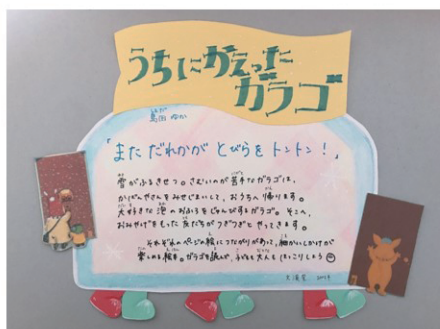 うちにかえった
ガラゴ
島田 ゆか
「また だれかが とびらを トントン！」
雪がふるきせつ。さむいのが苦手なガラゴは、
かばんやさんをみせじまいして、おうちへ帰ります。
大好きな 泡のおふろをじゅんびするガラゴ。そこへ、
おみやげをもった友だちがつぎつぎと やってきます。
それぞれのページの絵につながりがあって、細かいしかけが
楽しめる絵本。ガラゴを読んで、子どもも大人もほっこりしよう